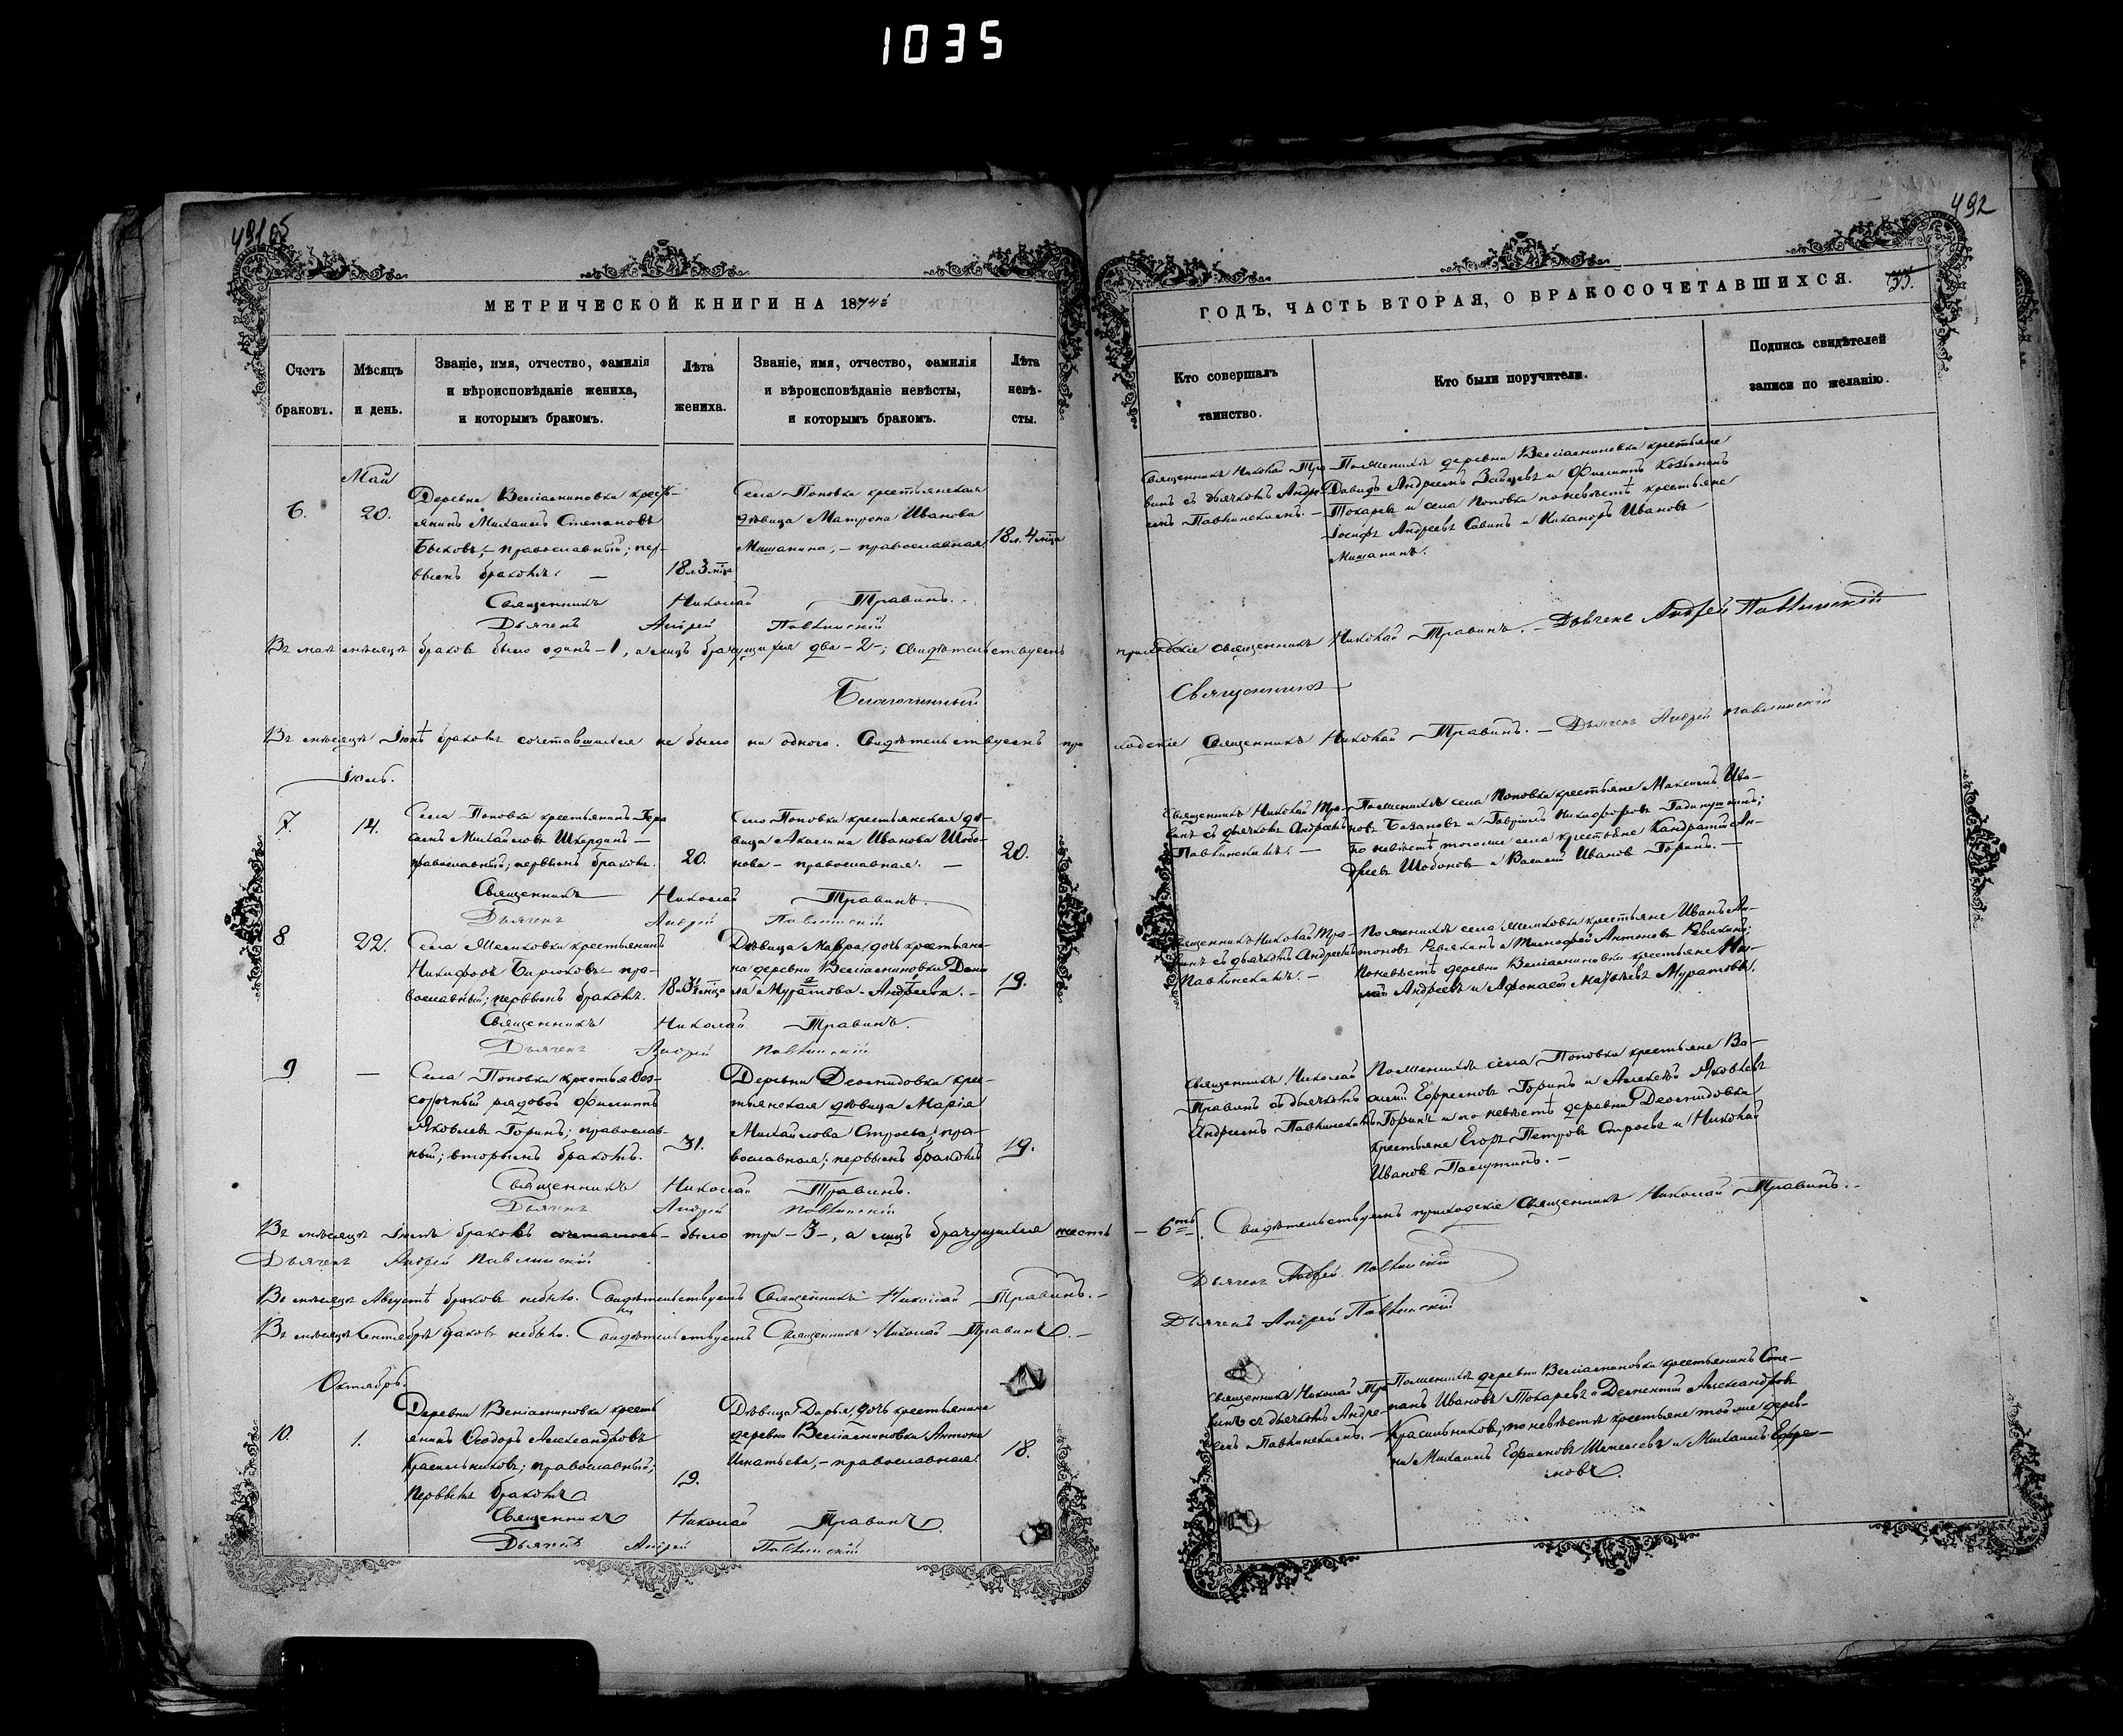 1035
492
МЕТРИЧЕСКОЙ КНИГИ НА 1874й
ГОДЪ, ЧАСТЬ ВТОРАЯ, О БРАКОСОЧЕТАВШИХСЯ.
Счетъ браковъ.
Мѣсяцъ и день.
Званіе, имя, отчество, фамилія
и вѣроисповѣданіе жениха,
и которымъ бракомъ.
Лѣта жениха.
Званіе, имя, отчество, фамилія
и вѣроисповѣданіе невѣсты,
и которымъ бракомъ.
Лѣта невѣ-
сты.
Кто совершалъ
таинство.
Кто были поручители.
Подпись свидѣтелей
записи по желанію.
Май
6.
20.
Деревни крест-
янинъ Михаилъ Степановъ
Быковъ, – православный; пер-
вымъ бракомъ. –
18 л. 3 мца
Села Поповки крестьянская
дѣвица Матрона Иванова
Мишанина, – православная.
18 л. 4 мца
Священникъ Николай Тра-
винъ съ дьячкомъ Андре-
емъ Павлинскимъ. –
По женихѣ деревни крестьяне
Давидъ Андреевъ Зайцевъ и Филиппъ
Токаревъ и села Поповки по невѣстѣ крестьяне
Іосифъ Андреевъ Савинъ и Никаноръ Ивановъ
Мишанинъ.
Священникъ Николай Травинъ. –
Дьячекъ Андрей Павлинскій
Въ маѣ мѣсяцѣ браковъ было одинъ – 1, а лицъ брачущихся два – 2 –; свидѣтельствуемъ
приходскіе священникъ Николай Травинъ. – Дьячекъ Андрей Павлинскій
Благочинный
Священникъ
Въ мѣсяцѣ Іюнѣ браковъ сочетавшихся не было ни одного. Свидѣтельствуемъ при
ходскіе Священникъ Николай Травинъ. – Дьячекъ Андрей Павлинскій
Іюль.
7.
14.
Села Поповки крестьянинъ Гера
симъ Михайловъ –
православный; первымъ бракомъ.
20.
Села Поповки крестьянская дѣ-
вица Акилина Иванова Шобо-
нова – православная. –
20.
Священникъ Николай Тра-
винъ съ дьячкомъ Андреемъ
Павлинскимъ. –
По женихѣ села Поповки крестьяне Максимъ Ива-
новъ и Гавріилъ Никифоровъ
по невѣстѣ тогоже села крестьяне Кандратій Ан-
дреевъ Шобоновъ и Василій Ивановъ Горинъ. –
Священникъ Николай Травинъ.
Дьячекъ Андрей Павлинскій
8
22.
крестьянинъ
Никифоръ Бирюковъ – пра-
вославный; первымъ бракомъ.
Дѣвица Мавра, дочь крестьяни-
на деревни Дани
ла Муратова – Андреева. –
19.
Священникъ Николай Тра-
винъ съ дьячкомъ Андреемъ
Павлинскимъ. –
По женихѣ села крестьяне Иванъ Ан-
тоновъ Ревякинъ и Тимофей Антоновъ Ревякинъ;
по невѣстѣ деревни крестьяне Ни-
лай Андреевъ и Афонасій Матвѣевъ Муратовы.
Священникъ Николай Травинъ.
Дьячекъ Андрей Павлинскій
9
–
Села Поповки
срочный рядовой Филиппъ
Яковлевъ Горинъ; православ-
ный; вторымъ бракомъ.
31.
Деревни крес-
тьянская дѣвица Марія
Михайлова Строева; пра-
вославная; первымъ бракомъ
19.
Священникъ Николай
Травинъ съ дьячкомъ
Андреемъ Павлинскимъ
По женихѣ села Поповки крестьяне Ва-
силій Ефремовъ Горинъ и Алексѣй Яковлевъ
Горинъ и по невѣстѣ деревни
крестьяне Егоръ Петровъ Строевъ и Николай
Ивановъ
Священникъ Николай Травинъ.
Дьячекъ Андрей Павлинскій
Въ мѣсяцѣ Іюлѣ браковъ было три – 3 –, а лицъ брачущихся шесть
– 6ть. Свидѣтельствуемъ приходскіе Священникъ Николай Травинъ. –
Дьячекъ Андрей Павлинскій
Дьячекъ Андрей Павлинскій
Въ мѣсяцѣ Августѣ браковъ небыло. Свидѣтельствуемъ Священникъ Николай Травинъ. –
Въ мѣсяцѣ Сентябрѣ браковъ небыло. Свидѣтельствуемъ Священникъ Николай Травинъ. –
Дьячекъ Андрей Павлинскій
Октябрь.
10.
1.
Деревни крестъ
янинъ Ѳеодоръ Александровъ
Красильниковъ; православный;
первымъ бракомъ
19.
Дѣвица Дарья, дочь крестьянина
деревни Антона
Игнатьева, – православная.
18.
Священникъ Николай Тра
винъ съ дьячкомъ Андре-
емъ Павлинскимъ. –
По женихѣ деревни крестьянинъ Сте-
панъ Ивановъ Токаревъ и Дементій Александровъ
Красильниковъ; по невѣстѣ крестьяне той же дерев-
ни Михаилъ и Михаилъ Ефре-
мовъ.
Священникъ Николай Травинъ.
Дьячекъ Андрей Павлинскій